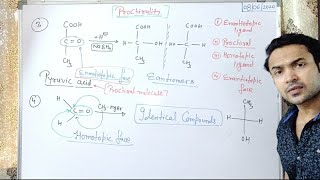 Prochirality
08/06/2020
③
COOH
C=O
CH3
+H⊖
NaBH4
COOH
H
OH
CH3
COOH
H
CH3
Enantiotopic face
Enantiomers
Pyruvic acid
Prochiral molecule?
① Enantiotopic ligand
② Prochiral
③ Homotopic ligand
④ Enantiotopic face
④
H
C=O
H
CH3-MgBr
Identical Compounds
CH3
H
H
OH
Homotopic face